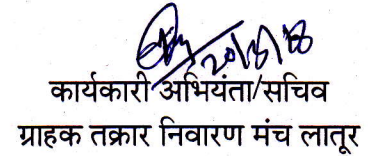 कार्यकारी अभियंता/सचिव
ग्राहक तक्रार निवारण मंच लातूर